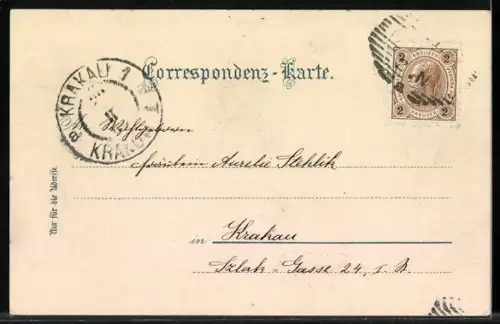 Correspondenz-Karte.
KRAKAU 1
KRAKÓW
2 2
2 2
Wohlgeboren
Fräulein Aurelie Stehlik
in Krakau
Szlak-Gasse 24, I. B.
Nur für die Adresse